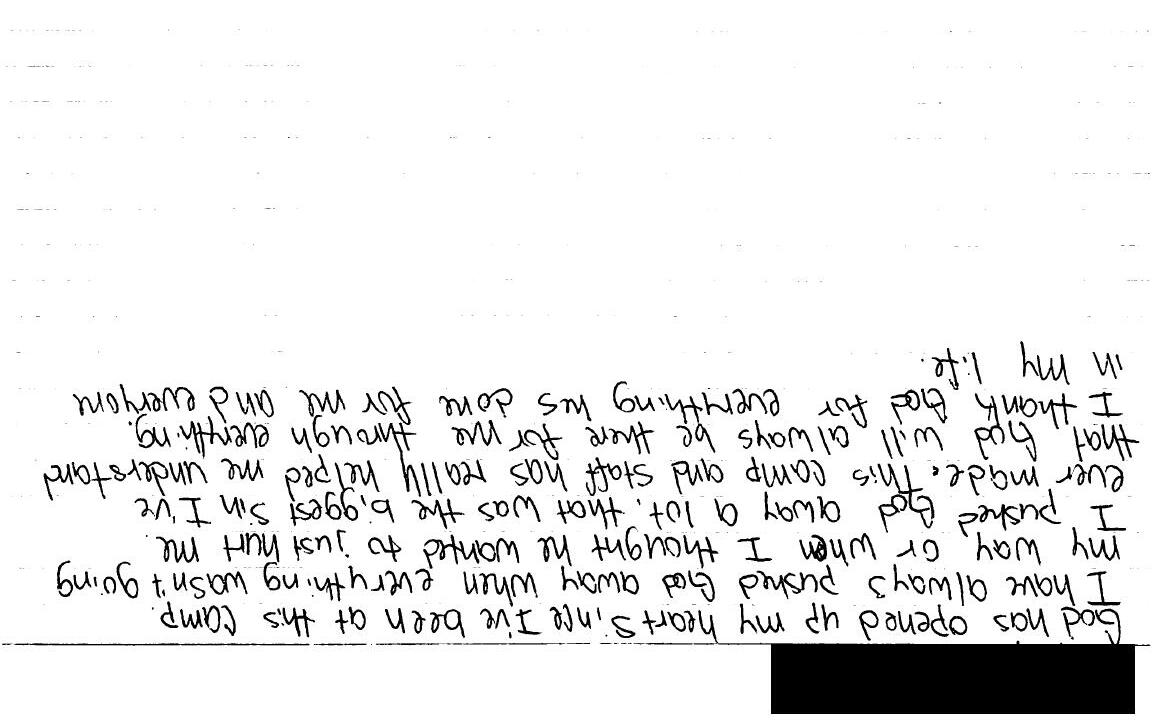 God has opened up my heart since I've been at this camp.
I have always pushed God away when everything wasn't going
my way, or when I thought he wanted to just hurt me.
I pushed God away a lot, that was the biggest sin I've
ever made. This camp and staff has really helped me understand
that God will always be there for me through everything.
I thank God for everything hes done for me and everyone
in my life.